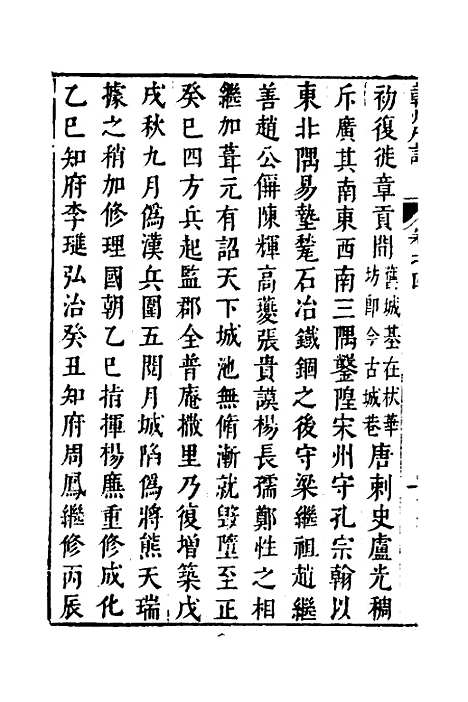 初復徙章貢間舊城基在杕華坊即今古城巷唐刺史盧光稠
斥廣其南東西南三隅鑿隍宋州守孔宗翰以
東北隅易墊甃石冶鐵錮之後守梁繼祖趙繼
善趙公偋陳輝高夔張貴謨楊長孺鄭性之相
繼加葺元有詔天下城池無脩漸就毀墮至正
癸巳四方兵起監郡全普庵撒里乃復增築戊
戌秋九月僞漢兵圍五閱月城陷僞將熊天瑞
據之稍加修理國朝乙巳指揮楊廉重修成化
乙巳知府李璡弘治癸丑知府周鳳繼修丙辰